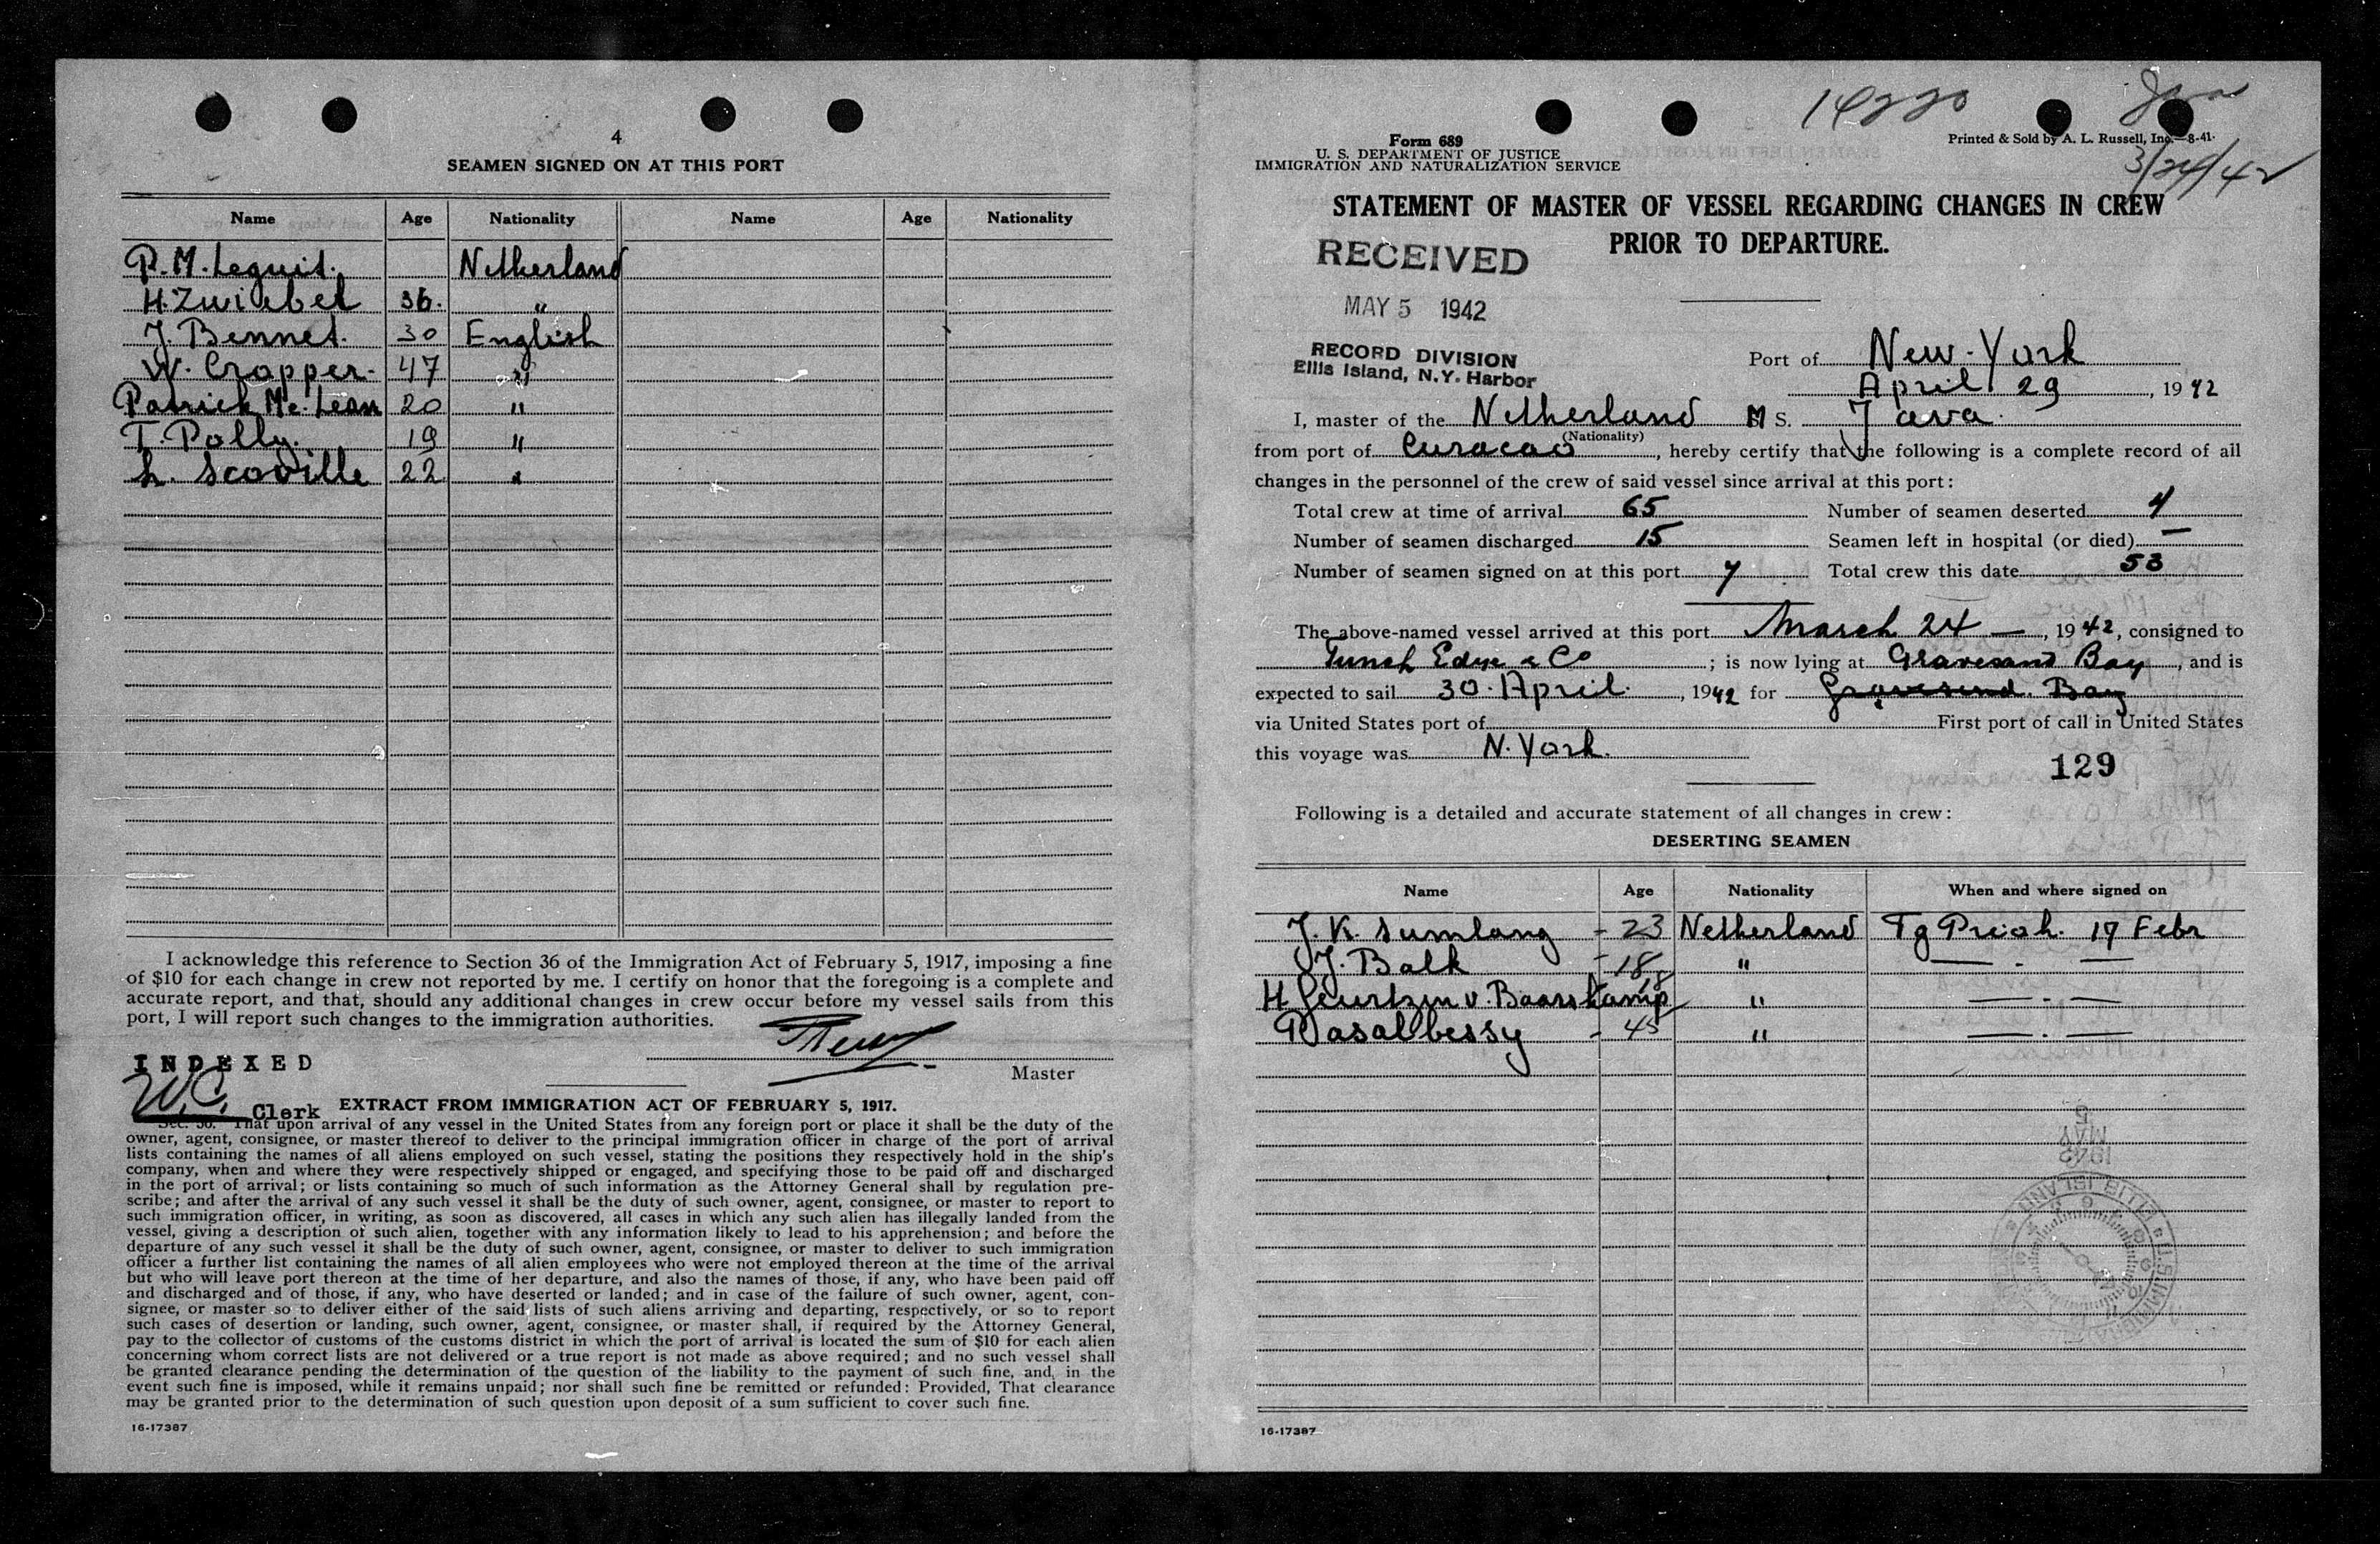 4
SEAMEN SIGNED ON AT THIS PORT
Name Age Nationality Name Age Nationality
P. M. Lequit. Netherland
H. Zwiebel 36. "
J. Bennet. 30 English
W. Cropper. 47 "
Patrick Mc. Lean 20 "
T. Polly. 19 "
L. Scoville 22 "
I acknowledge this reference to Section 36 of the Immigration Act of February 5, 1917, imposing a fine
of $10 for each change in crew not reported by me. I certify on honor that the foregoing is a complete and
accurate report, and that, should any additional changes in crew occur before my vessel sails from this
port, I will report such changes to the immigration authorities.
Master
INDEXED
W.C. Clerk
EXTRACT FROM IMMIGRATION ACT OF FEBRUARY 5, 1917.
Sec. 36. That upon arrival of any vessel in the United States from any foreign port or place it shall be the duty of the
owner, agent, consignee, or master thereof to deliver to the principal immigration officer in charge of the port of arrival
lists containing the names of all aliens employed on such vessel, stating the positions they respectively hold in the ship's
company, when and where they were respectively shipped or engaged, and specifying those to be paid off and discharged
in the port of arrival; or lists containing so much of such information as the Attorney General shall by regulation pre-
scribe; and after the arrival of any such vessel it shall be the duty of such owner, agent, consignee, or master to report to
such immigration officer, in writing, as soon as discovered, all cases in which any such alien has illegally landed from the
vessel, giving a description of such alien, together with any information likely to lead to his apprehension; and before the
departure of any such vessel it shall be the duty of such owner, agent, consignee, or master to deliver to such immigration
officer a further list containing the names of all alien employees who were not employed thereon at the time of the arrival
but who will leave port thereon at the time of her departure, and also the names of those, if any, who have been paid off
and discharged and of those, if any, who have deserted or landed; and in case of the failure of such owner, agent, con-
signee, or master so to deliver either of the said lists of such aliens arriving and departing, respectively, or so to report
such cases of desertion or landing, such owner, agent, consignee, or master shall, if required by the Attorney General,
pay to the collector of customs of the customs district in which the port of arrival is located the sum of $10 for each alien
concerning whom correct lists are not delivered or a true report is not made as above required; and no such vessel shall
be granted clearance pending the determination of the question of the liability to the payment of such fine, and, in the
event such fine is imposed, while it remains unpaid; nor shall such fine be remitted or refunded: Provided, That clearance
may be granted prior to the determination of such question upon deposit of a sum sufficient to cover such fine.
16-17387
14220
3/24/42
Form 689
U. S. DEPARTMENT OF JUSTICE
IMMIGRATION AND NATURALIZATION SERVICE
Printed & Sold by A. L. Russell, Inc.—8-41.
STATEMENT OF MASTER OF VESSEL REGARDING CHANGES IN CREW
PRIOR TO DEPARTURE.
RECEIVED
MAY 5 1942
RECORD DIVISION
Ellis Island, N.Y. Harbor
Port of New-York
April 29, 1942
I, master of the Netherland M S. Java.
(Nationality)
from port of Curacao, hereby certify that the following is a complete record of all
changes in the personnel of the crew of said vessel since arrival at this port:
Total crew at time of arrival 65 Number of seamen deserted 4
Number of seamen discharged 15 Seamen left in hospital (or died) —
Number of seamen signed on at this port 7 Total crew this date 53
The above-named vessel arrived at this port March 24 —, 1942, consigned to
Funch Edye & Co; is now lying at Gravesand Bay, and is
expected to sail 30. April., 1942 for Gravesend. Bay
via United States port of First port of call in United States
this voyage was N. York.
129
Following is a detailed and accurate statement of all changes in crew:
DESERTING SEAMEN
Name Age Nationality When and where signed on
J. K. Sumlang - 23 Netherland Tg Priok. 17 Febr
J. Balk - 18 " — . —
H Geurtzen v. Baarskamp 18 " — . —
Wasalbessy - 45 " — . —
MAY 5 1942
16-17387